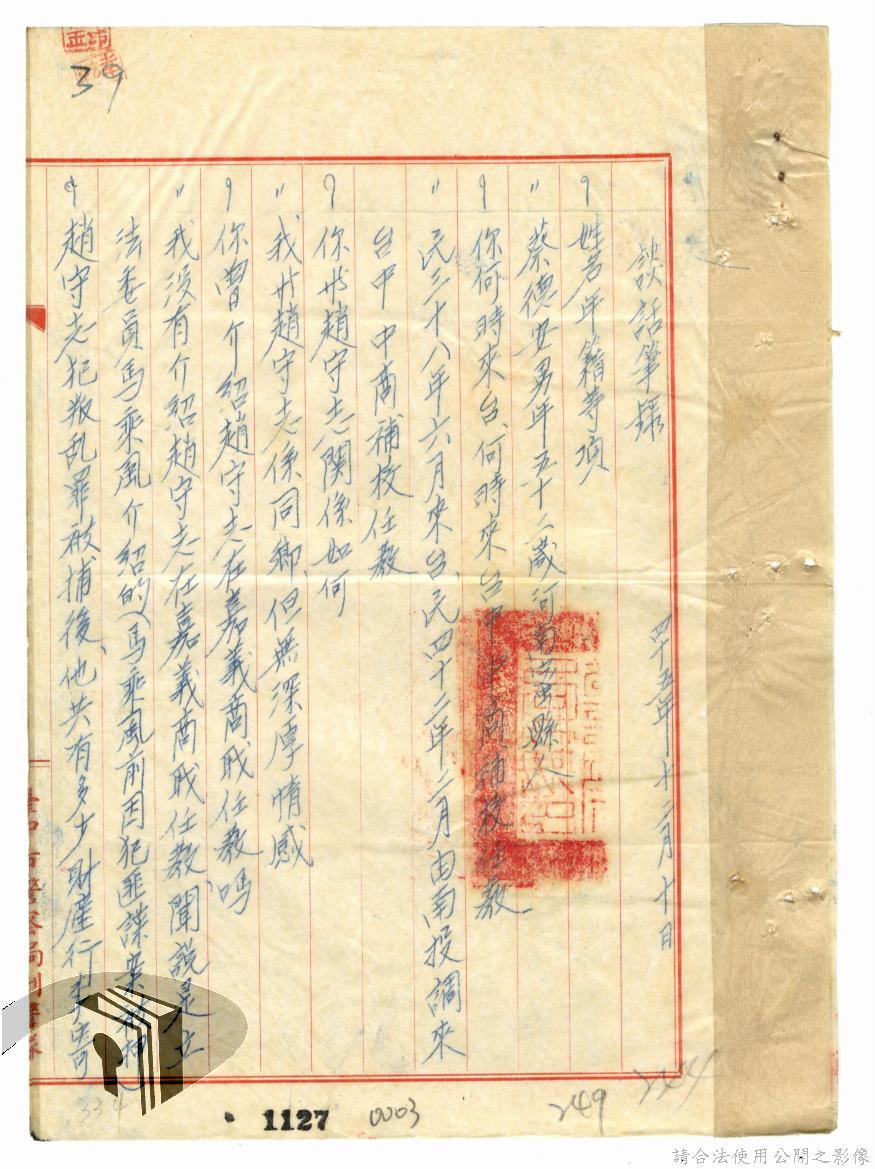 39
談話筆錄
四十五年十二月十日
？姓名年籍等項
〃蔡德安男年五十二歲河南 縣人
？你何時來台、何時來台中中商補校任教
〃民三十八年六月來台、民四十三年二月由南投調來
台中中商補校任教
？你与趙守志関係如何
〃我与趙守志係同鄉、但無深厚情感
？你曾介紹趙守志在嘉義商职任教嗎
〃我没有介紹趙守志在嘉義商职任教、聞說是立
法委員馬乘風介紹的(馬乘風前因犯匪諜案
？趙守志犯叛乱罪被捕後、他共有多少財產行李寄
臺中市警察局刑警隊
334
1127
0003
249
244
請合法使用公開之影像